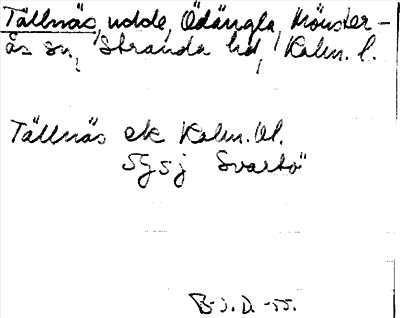 Tällnäs, udde, Ödängla, Mönster-
ås sn, Stranda hd, Kalm. l.
Tällnäs ek Kalm. bl.
5g5j Svartö
B-s. D. -55.